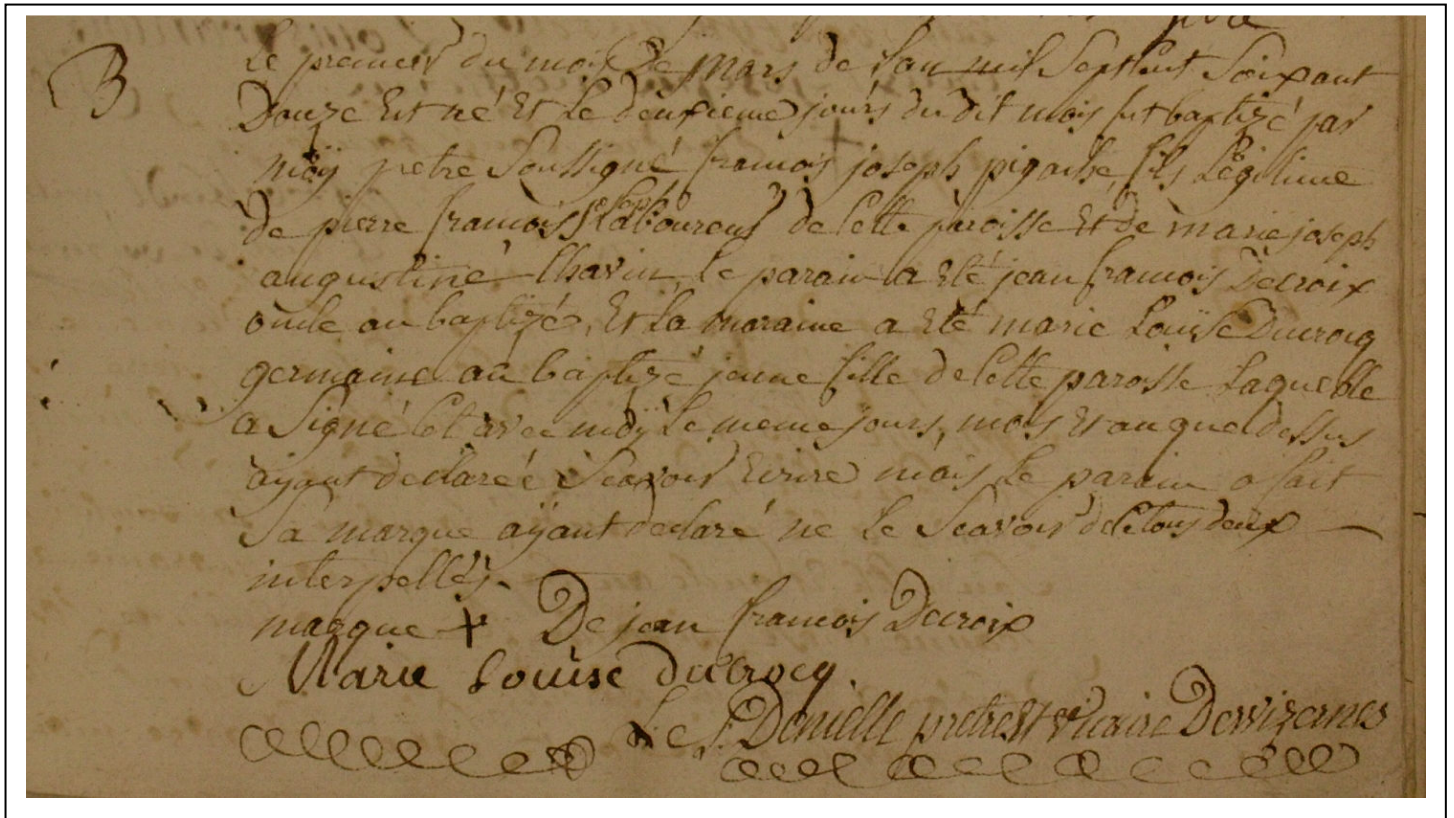 B
Le premier du mois de mars de l'an mil Sept Cent Soixant
Douze Est né Et Le deuxieme jours du dit mois fut baptizé par
moÿ pretre Soussigné francois joseph pigache, fils Légitime
De pierre francois joseph Laboureur de Cette paroisse Et de marie joseph
augustine le parain a Eté jean francois Decroix
oncle au baptizé, Et la maraine a Eté marie Louïse Ducrocq
germaine au baptizé jeune fille de Cette paroisse Laquelle
a Signé avec moÿ Le meme jours, mois Et an que dessus
aÿant declareé Scavoir Ecrire mais Le parain a fait
Sa marque aÿant declaré ne Le Scavoir de Ce tous deux
interpellés.
marque + De jean francois Decroix
Marie Louise Ducrocq.
Le S. Denielle pretre Et vicaire Dewizernes